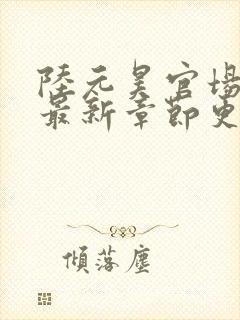 陸元昊官場
最新章節更
傾落塵